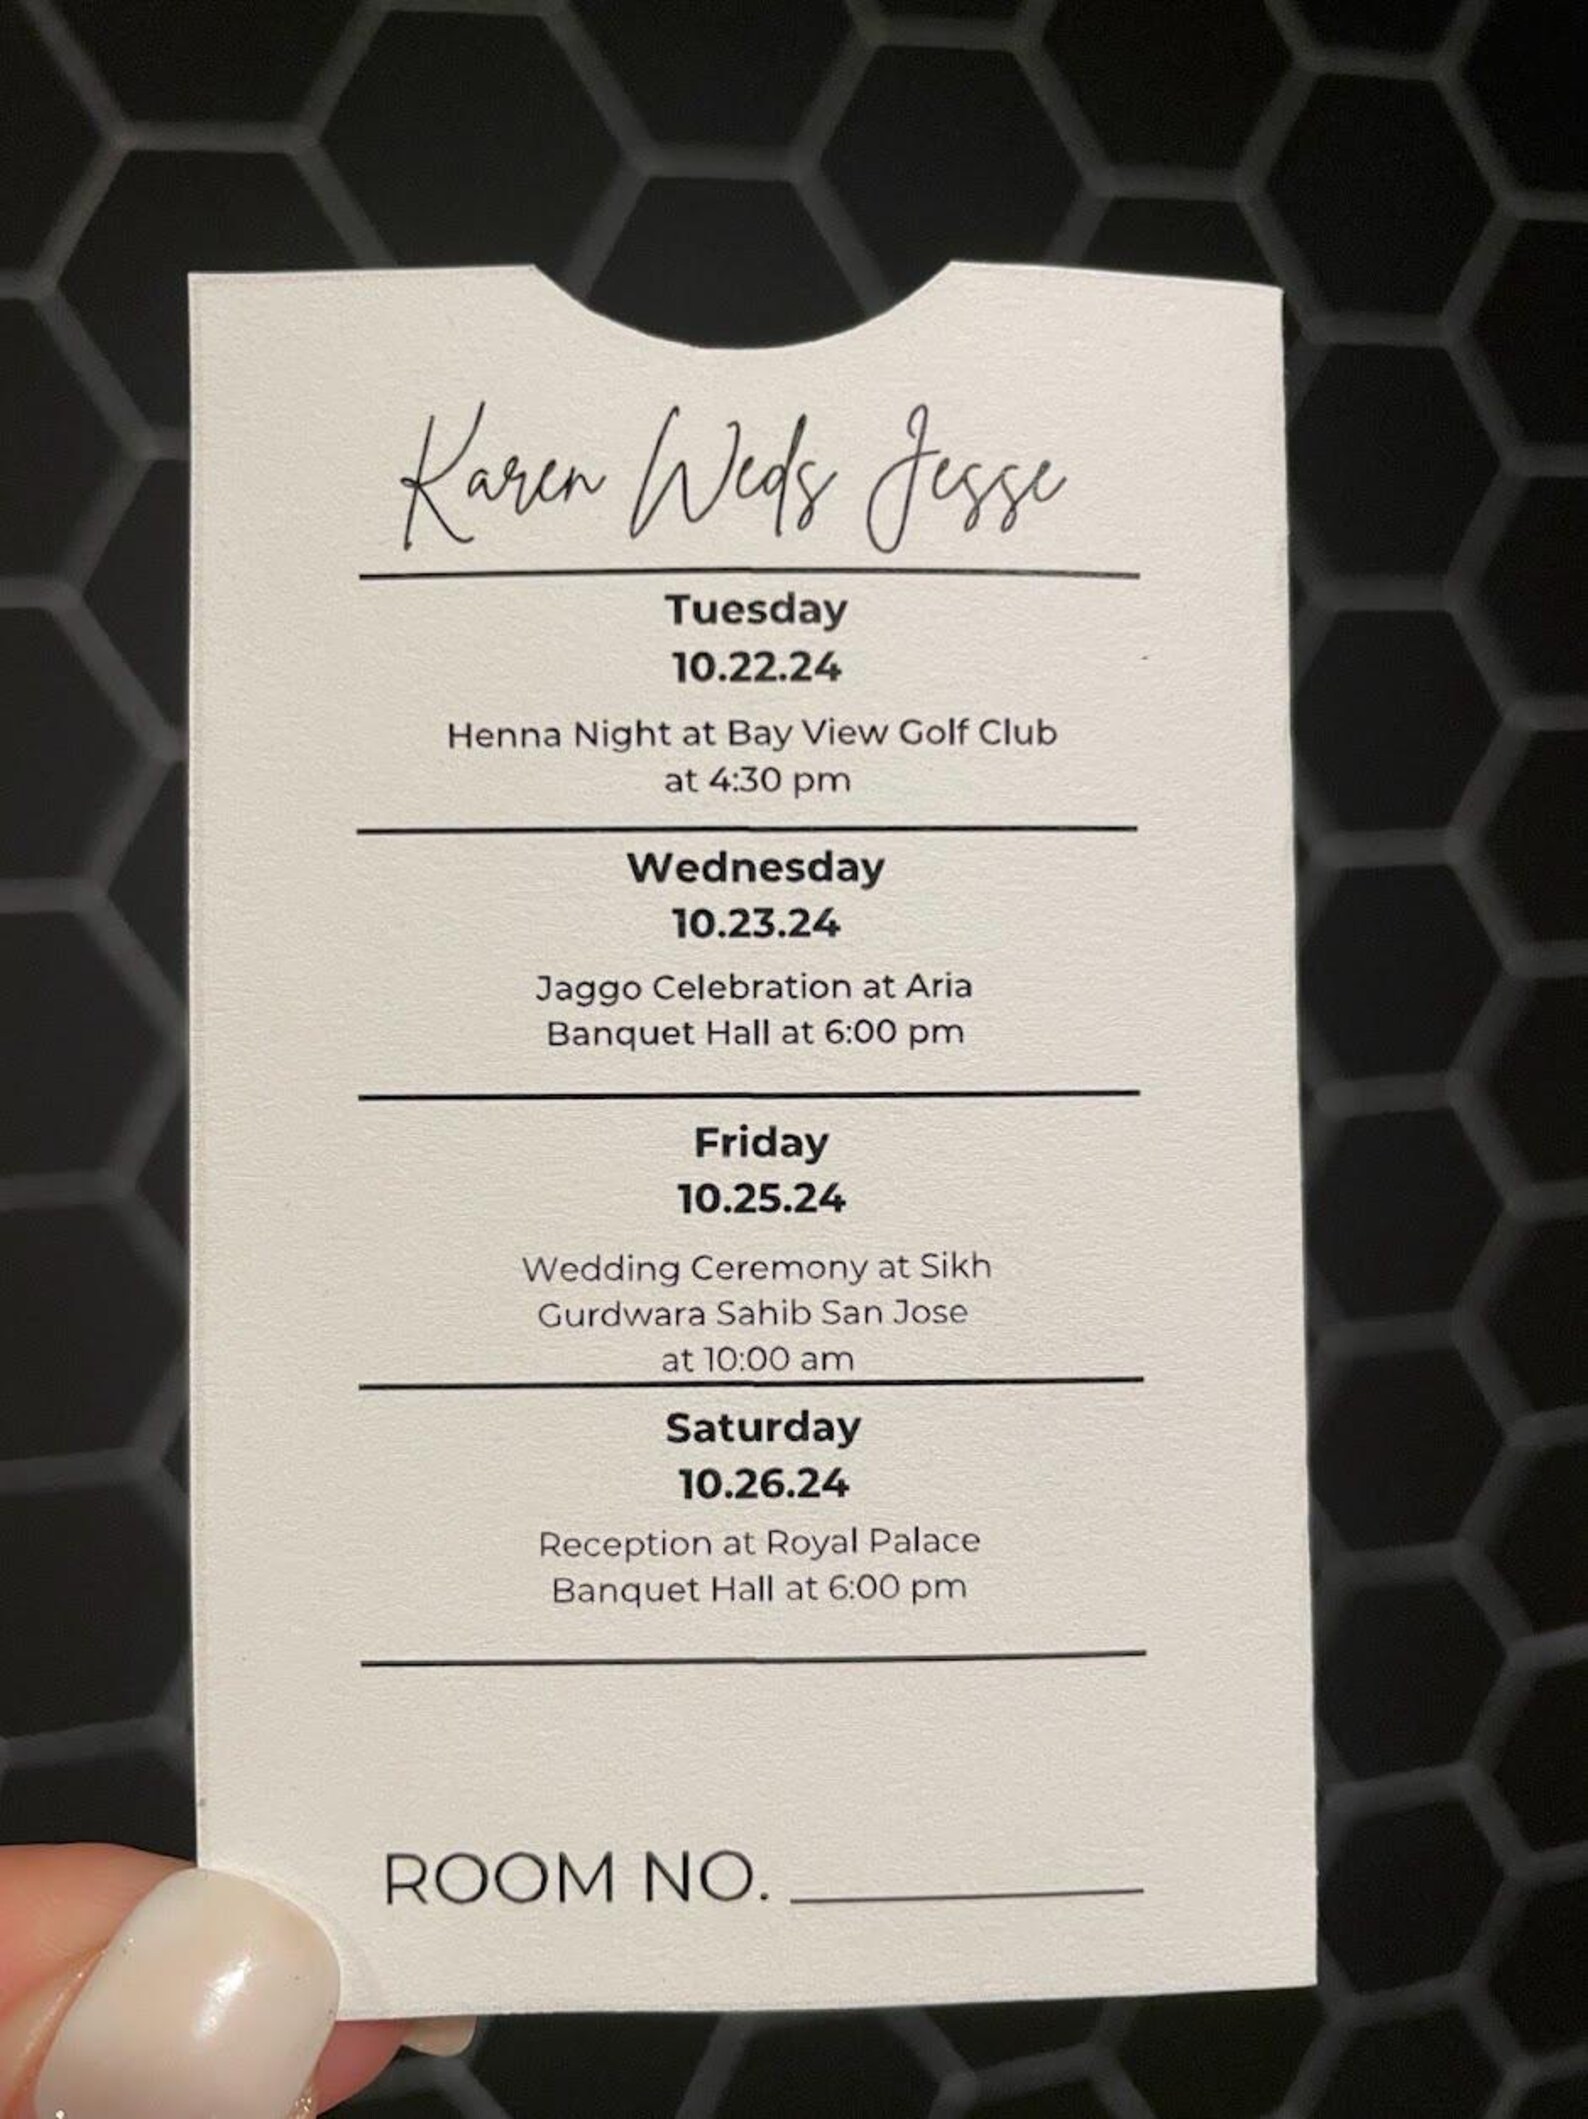 Karen Weds Jesse
Tuesday
10.22.24
Henna Night at Bay View Golf Club
at 4:30 pm
Wednesday
10.23.24
Jaggo Celebration at Aria
Banquet Hall at 6:00 pm
Friday
10.25.24
Wedding Ceremony at Sikh
Gurdwara Sahib San Jose
at 10:00 am
Saturday
10.26.24
Reception at Royal Palace
Banquet Hall at 6:00 pm
ROOM NO. ________